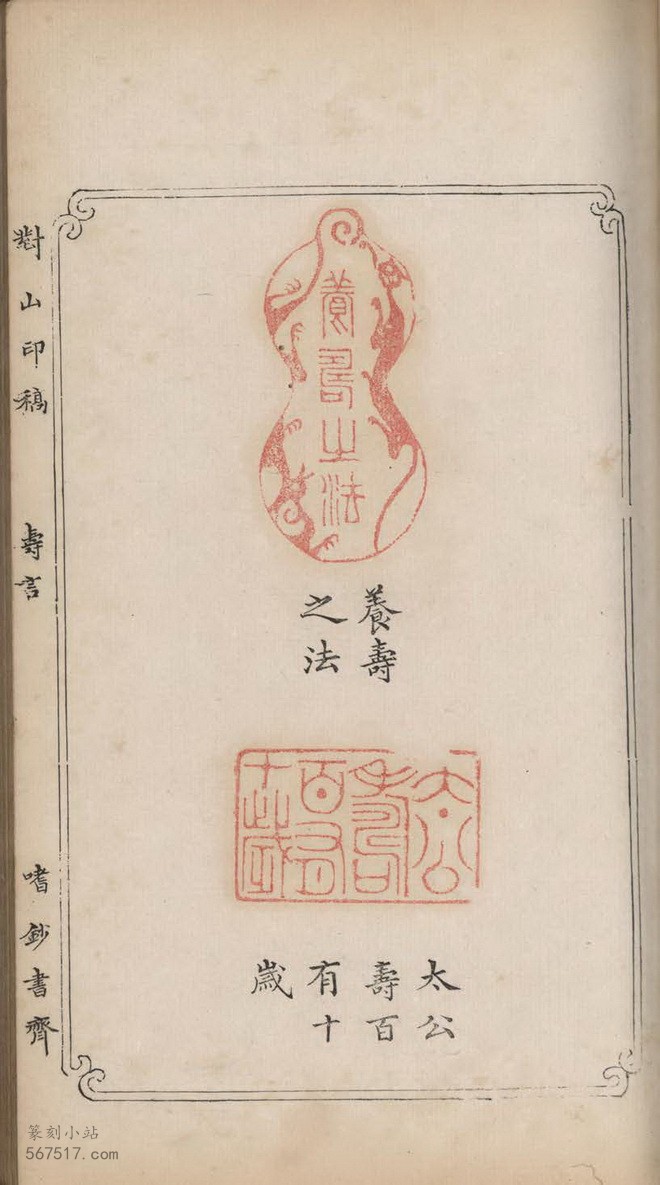 養壽之法
養壽
之法
太公
壽百
有十
歲
太公
壽百
有十
歲
對山印稿
壽言
嗜鈔書齊
篆刻小站
567517.com